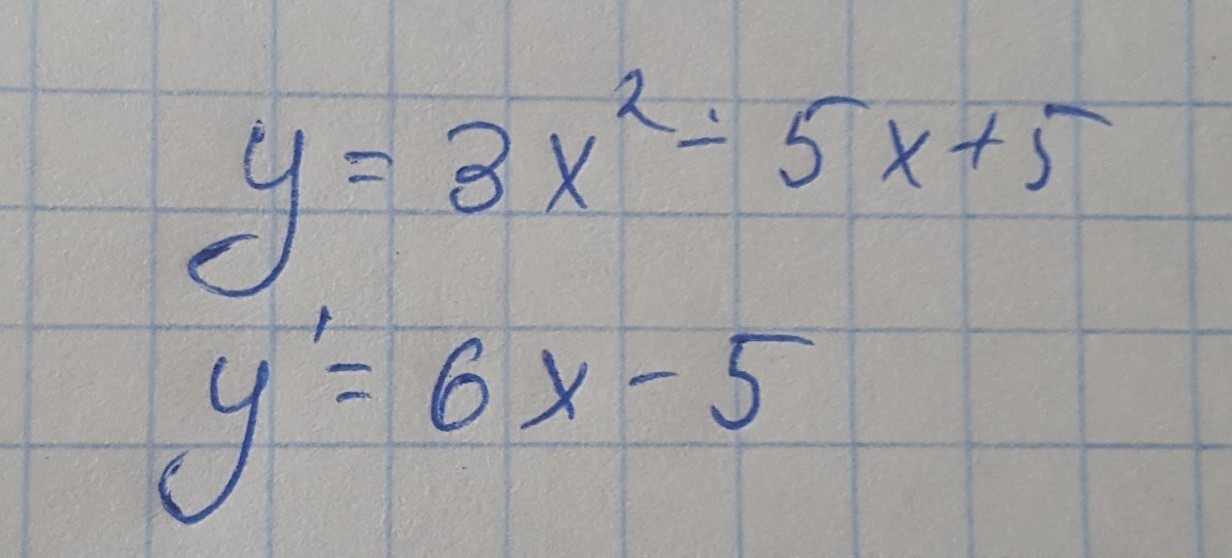 y = 3x² - 5x + 5
y' = 6x - 5